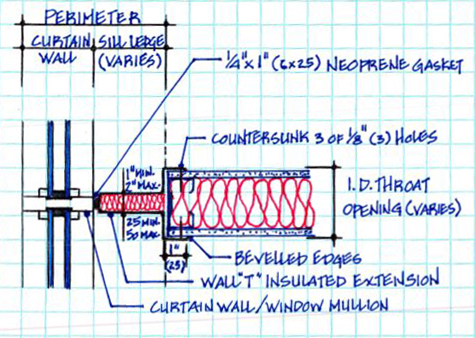 PERIMETER
CURTAIN WALL
SILL LEDGE (VARIES)
1/4" x 1" (6x25) NEOPRENE GASKET
COUNTERSUNK 3 OF 1/8" (3) HOLES
1" MIN.
2" MAX.
I.D. THROAT
OPENING (VARIES)
25 MIN.
50 MAX.
1"
(25)
BEVELLED EDGES
WALL "T" INSULATED EXTENSION
CURTAIN WALL/WINDOW MULLION